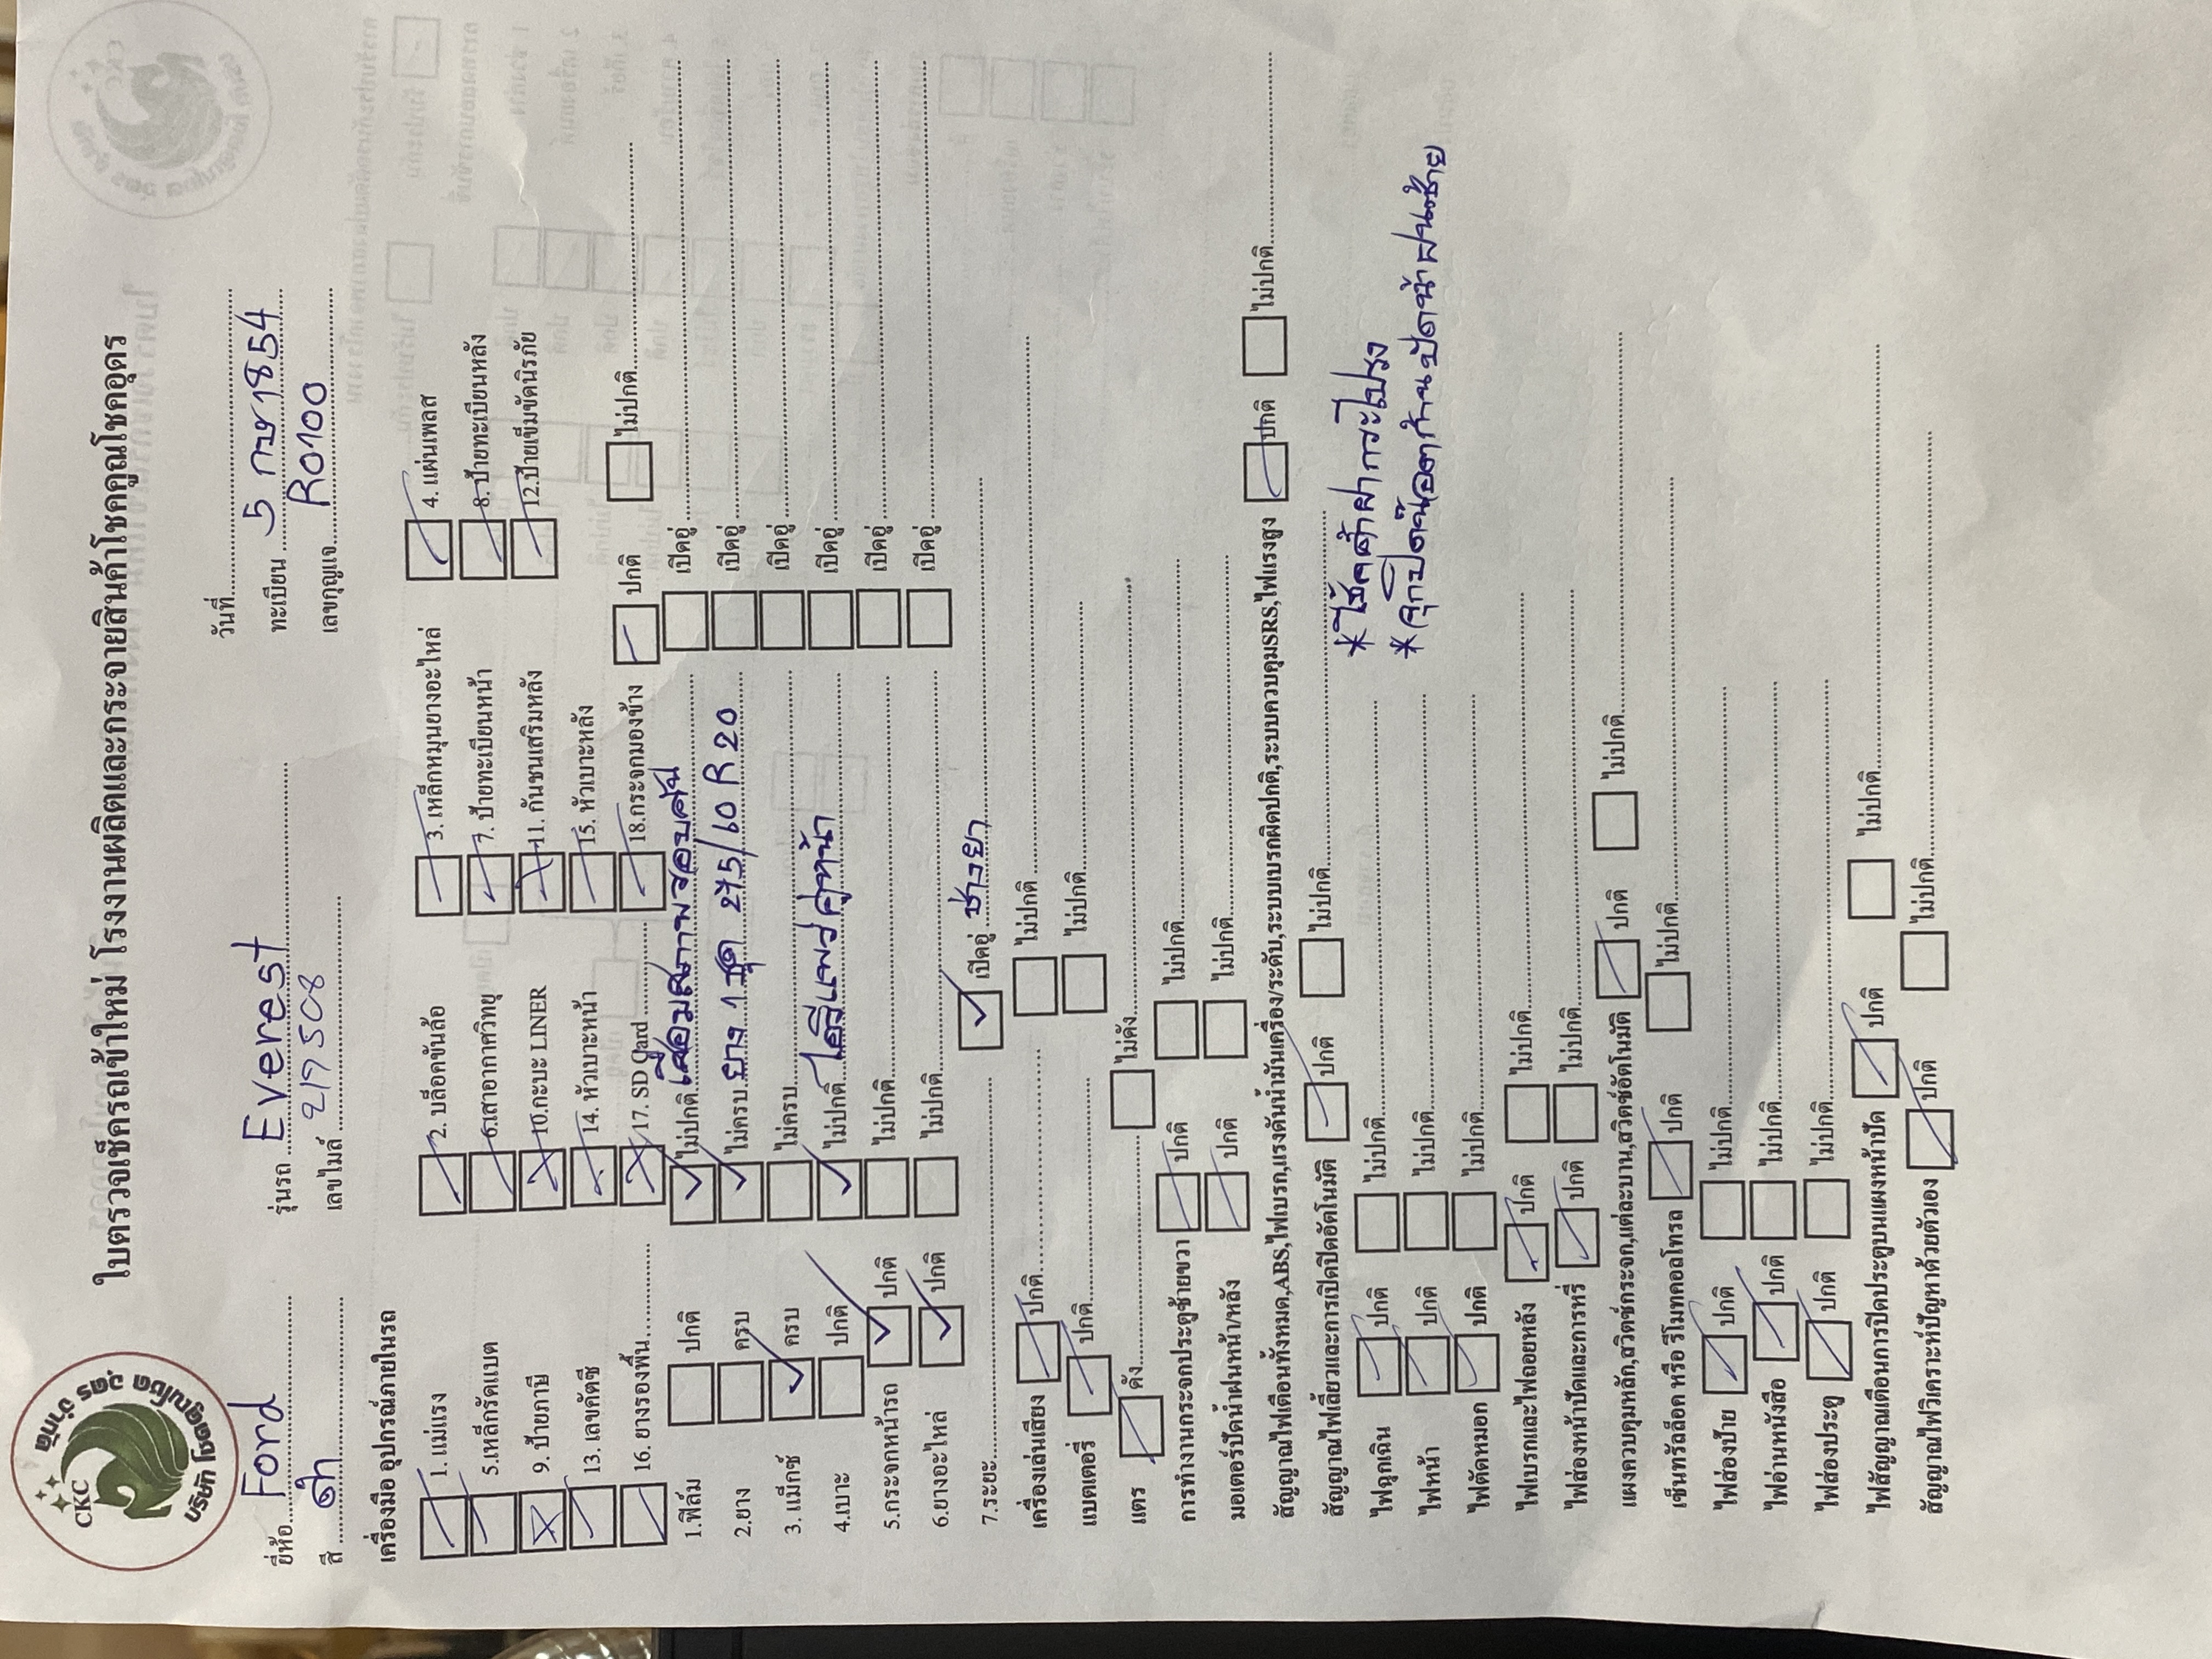 บริษัท โชคคูณโชค อุดร จำกัด
CKC
ใบตรวจเช็ครถเข้าใหม่ โรงงานผลิตและกระจายสินค้าโชคคูณโชคอุดร
วันที่
ยี่ห้อ Ford รุ่นรถ Everest ทะเบียน 5 กษ 1854
สี ดำ เลขไมล์ 217508 เลขกุญแจ R0100
เครื่องมือ อุปกรณ์ภายในรถ
1. แม่แรง 2. บล็อคขันล้อ 3. เหล็กหมุนยางอะไหล่ 4. แผ่นเพลส
5.เหล็กรัดแบต 6.เสาอากาศวิทยุ 7. ป้ายทะเบียนหน้า 8.ป้ายทะเบียนหลัง
9. ป้ายภาษี 10.กะบะ LINER 11. กันชนเสริมหลัง 12.ป้ายเข็มขัดนิรภัย
13. เลขคัตซี 14. หัวเบาะหน้า 15. หัวเบาะหลัง
16. ยางรองพื้น 17. SD Card 18.กระจกมองข้าง ปกติ ไม่ปกติ
1.ฟิล์ม ปกติ ไม่ปกติ เสื่อมสภาพรอบคัน เปิดอู่
2.ยาง ครบ ไม่ครบ ยาง 1 ชุด 275/60 R 20 เปิดอู่
3. แม็กซ์ ครบ ไม่ครบ เปิดอู่
4.เบาะ ปกติ ไม่ปกติ คู่หน้า เปิดอู่
5.กระจกหน้ารถ ปกติ ไม่ปกติ เปิดอู่
6.ยางอะไหล่ ปกติ ไม่ปกติ เปิดอู่
7.ระยะ เปิดอู่ ช่างยา
เครื่องเล่นเสียง ปกติ ไม่ปกติ
แบตเตอรี่ ปกติ ไม่ปกติ
แตร ดัง ไม่ดัง
การทำงานกระจกประตูซ้ายขวา ปกติ ไม่ปกติ
มอเตอร์ปัดน้ำฝนหน้า/หลัง ปกติ ไม่ปกติ
สัญญาณไฟเตือนทั้งหมด,ABS,ไฟเบรก,แรงดันน้ำมันเครื่อง/ระดับ,ระบบเบรกผิดปกติ,ระบบควบคุมSRS,ไฟแรงสูง ปกติ ไม่ปกติ
สัญญาณไฟเลี้ยวและการเปิดปิดอัตโนมัติ ปกติ ไม่ปกติ
ไฟฉุกเฉิน ปกติ ไม่ปกติ
* โช้คค้ำฝากระโปรง
ไฟหน้า ปกติ ไม่ปกติ
* จุกปิดน๊อตก้านปัดน้ำฝนซ้าย
ไฟตัดหมอก ปกติ ไม่ปกติ
ไฟเบรกและไฟถอยหลัง ปกติ ไม่ปกติ
ไฟส่องหน้าปัดและการหรี่ ปกติ ไม่ปกติ
แผงควบคุมหลัก,สวิตซ์กระจก,แต่ละบาน,สวิตซ์อัตโนมัติ ปกติ ไม่ปกติ
เซ็นทรัลล็อค หรือ รีโมทคอลโทรล ปกติ ไม่ปกติ
ไฟส่องป้าย ปกติ ไม่ปกติ
ไฟอ่านหนังสือ ปกติ ไม่ปกติ
ไฟส่องประตู ปกติ ไม่ปกติ
ไฟสัญญาณเตือนการปิดประตูบนแผงหน้าปัด ปกติ ไม่ปกติ
สัญญาณไฟวิเคราะห์ปัญหาด้วยตัวเอง ปกติ ไม่ปกติ